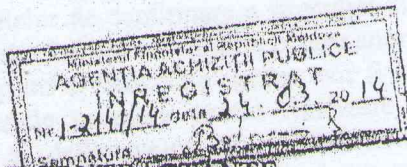 Ministerul Finanțelor al Republicii Moldova
AGENȚIA ACHIZIȚII PUBLICE
ÎNREGISTRAT
Nr. 1-2141/14 data 24. 03. 20 14
Semnătura